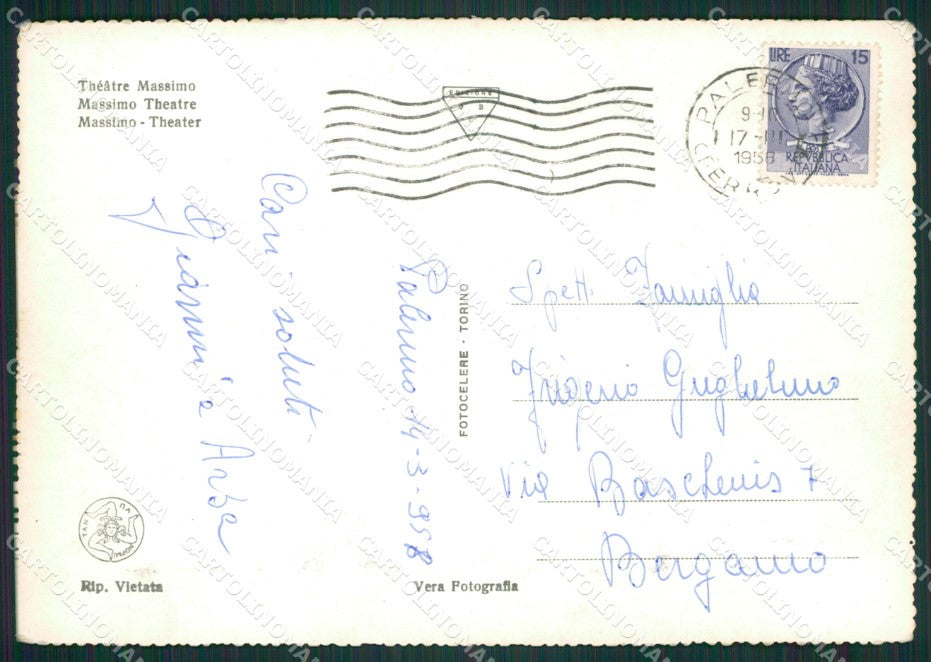 Théâtre Massimo
Massimo Theatre
Massimo - Theater
EDIZIONE
LIRE 15
REPUBBLICA
ITALIANA
PALERMO
17-III
1958
Cari saluti
Gianni e
Palermo 14-3-958
FOTOCELERE - TORINO
Spett. Famiglia
Frigerio Guglielmo
Via Baschenis 7
Bergamo
Rip. Vietata
Vera Fotografia
CARTOLINOMANIA